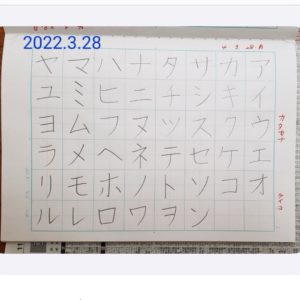 2022.3.28
カタカナ
アイウエオ
カキクケコ
サシスセソン
タチツテトヲ
ナニヌネノワ
ハヒフヘホロ
マミムメモレ
ヤユヨラリル